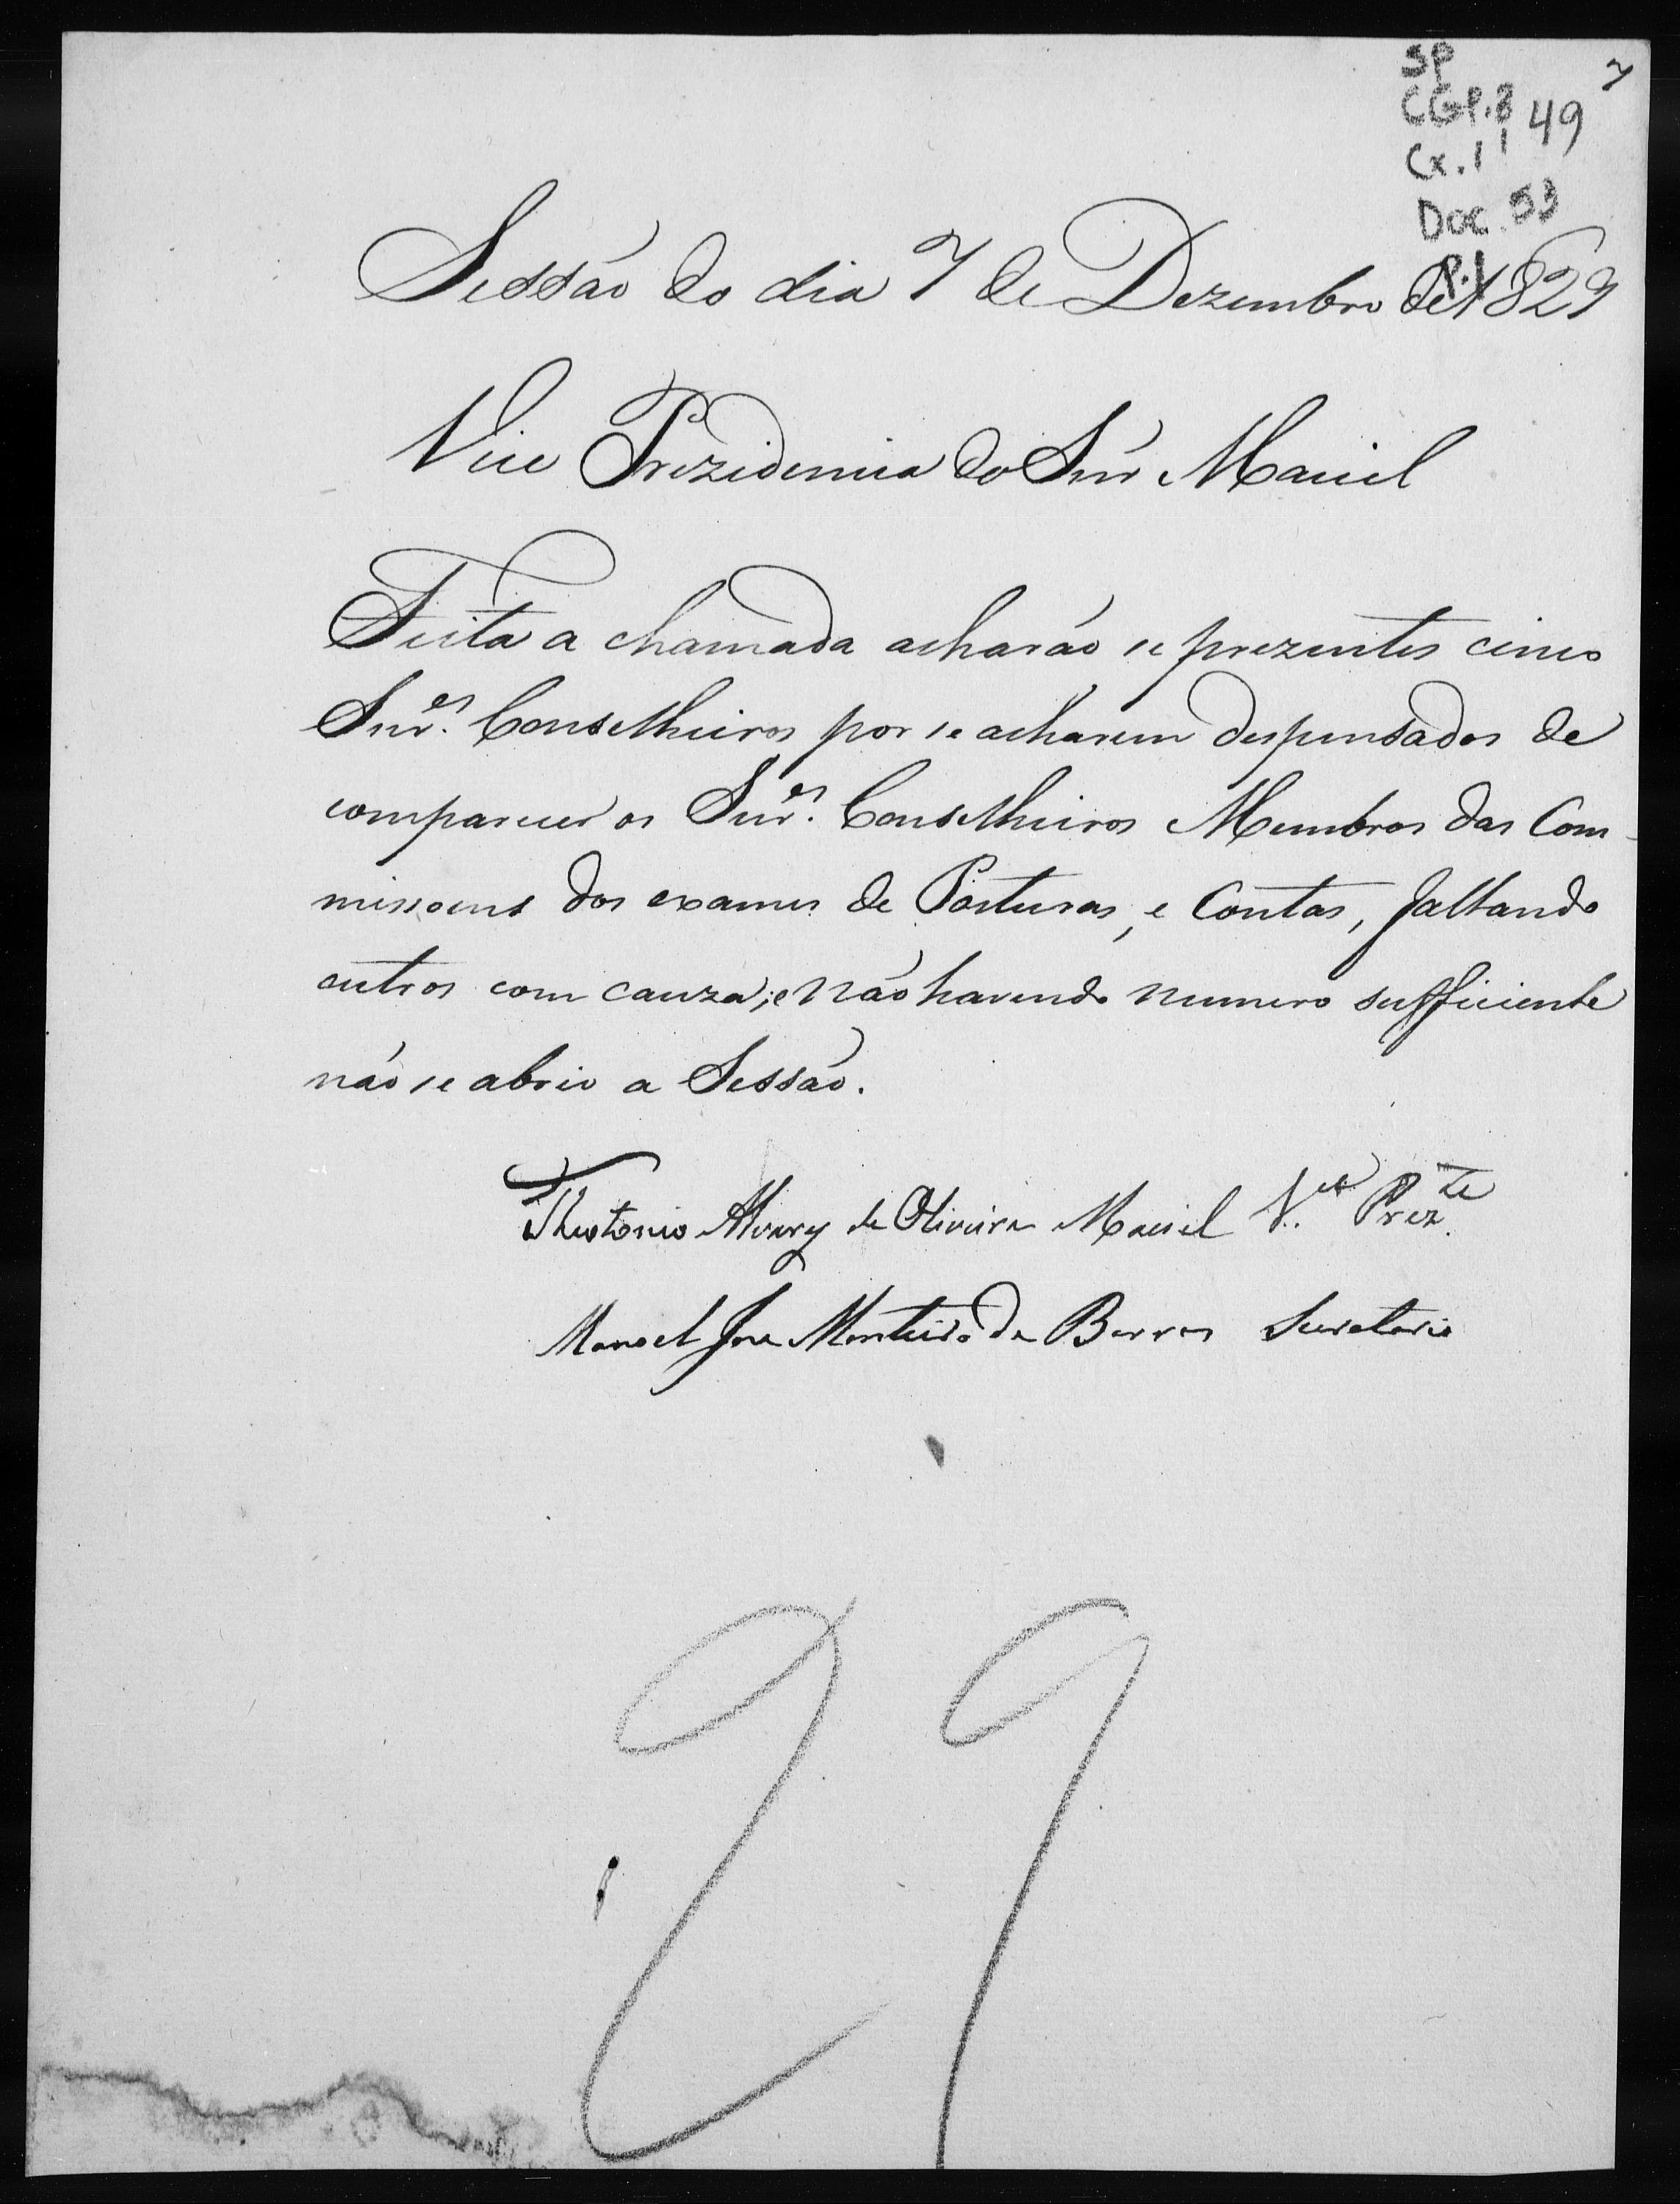 SP
7
CGP.8
49
Cx.1
Doc. 53
P.1
Sessão do dia 7 de Dezembro de 1829
Vice Prezidencia do Snr Maciel
Feita a chamada acharão se prezentes cinco
Snr.es Conselheiros por se acharem despensados de
comparecer os Snr.es Conselheiros Membros das Com-
missoens dos exames de Posturas, e Contas, faltando
outros com cauza; e não havendo numero sufficiente
não se abrio a Sessão.
Theotonio Alvarez de Oliveira Maciel V.ce Prez.te
Manoel Jose Monteiro de Barros Secretario
29